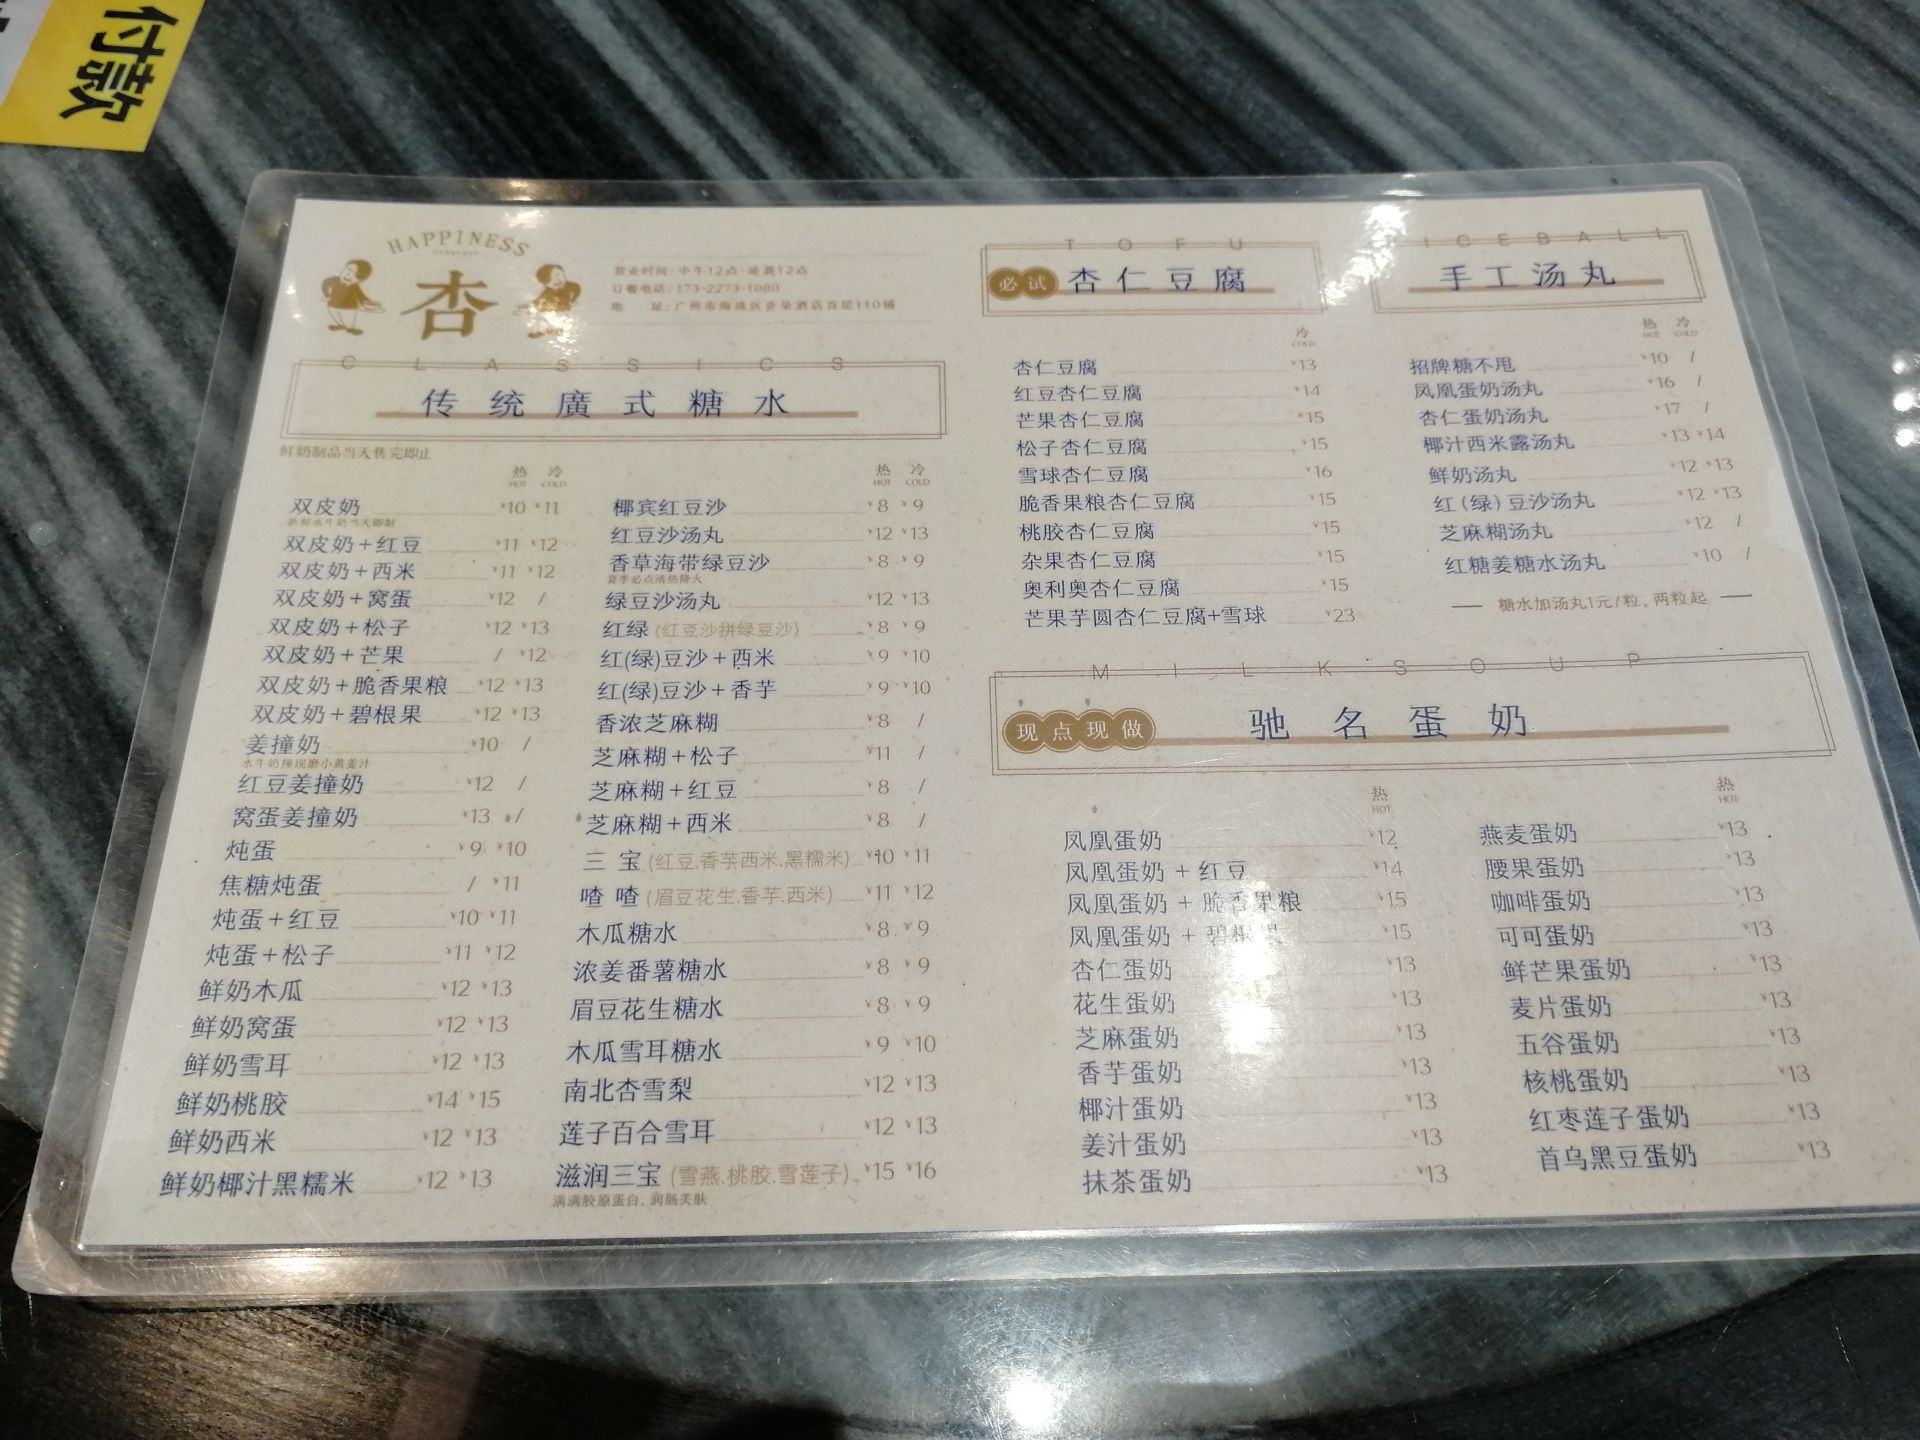 付款
HAPPINESS
杏
营业时间: 中午12点-凌晨12点
订餐电话: 173-2273-1080
地 址: 广州市海珠区壹朵酒店首层110铺
CLASSICS
传统廣式糖水
鲜奶制品当天售完即止
热 冷
HOT COLD
双皮奶 ¥10 ¥11
新鲜水牛奶当天即制
双皮奶+红豆 ¥11 ¥12
双皮奶+西米 ¥11 ¥12
双皮奶+窝蛋 ¥12 /
双皮奶+松子 ¥12 ¥13
双皮奶+芒果 / ¥12
双皮奶+脆香果粮 ¥12 ¥13
双皮奶+碧根果 ¥12 ¥13
姜撞奶 ¥10 /
水牛奶撞现磨小黄姜汁
红豆姜撞奶 ¥12 /
窝蛋姜撞奶 ¥13 /
炖蛋 ¥9 ¥10
焦糖炖蛋 / ¥11
炖蛋+红豆 ¥10 ¥11
炖蛋+松子 ¥11 ¥12
鲜奶木瓜 ¥12 ¥13
鲜奶窝蛋 ¥12 ¥13
鲜奶雪耳 ¥12 ¥13
鲜奶桃胶 ¥14 ¥15
鲜奶西米 ¥12 ¥13
鲜奶椰汁黑糯米 ¥12 ¥13
热 冷
HOT COLD
椰宾红豆沙 ¥8 ¥9
红豆沙汤丸 ¥12 ¥13
香草海带绿豆沙 ¥8 ¥9
夏季必点清热降火
绿豆沙汤丸 ¥12 ¥13
红绿 (红豆沙拼绿豆沙) ¥8 ¥9
红(绿)豆沙+西米 ¥9 ¥10
红(绿)豆沙+香芋 ¥9 ¥10
香浓芝麻糊 ¥8 /
芝麻糊+松子 ¥11 /
芝麻糊+红豆 ¥8 /
芝麻糊+西米 ¥8 /
三 宝 (红豆.香芋西米.黑糯米) ¥10 ¥11
喳 喳 (眉豆花生.香芋.西米) ¥11 ¥12
木瓜糖水 ¥8 ¥9
浓姜番薯糖水 ¥8 ¥9
眉豆花生糖水 ¥8 ¥9
木瓜雪耳糖水 ¥9 ¥10
南北杏雪梨 ¥12 ¥13
莲子百合雪耳 ¥12 ¥13
滋润三宝 (雪燕.桃胶.雪莲子) ¥15 ¥16
满满胶原蛋白, 润肠美肤
TOFU
必试 杏仁豆腐
冷
COLD
杏仁豆腐 ¥13
红豆杏仁豆腐 ¥14
芒果杏仁豆腐 ¥15
松子杏仁豆腐 ¥15
雪球杏仁豆腐 ¥16
脆香果粮杏仁豆腐 ¥15
桃胶杏仁豆腐 ¥15
杂果杏仁豆腐 ¥15
奥利奥杏仁豆腐 ¥15
芒果芋圆杏仁豆腐+雪球 ¥23
ICEBALL
手工汤丸
热 冷
HOT COLD
招牌糖不甩 ¥10 /
凤凰蛋奶汤丸 ¥16 /
杏仁蛋奶汤丸 ¥17 /
椰汁西米露汤丸 ¥13 ¥14
鲜奶汤丸 ¥12 ¥13
红(绿)豆沙汤丸 ¥12 ¥13
芝麻糊汤丸 ¥12 /
红糖姜糖水汤丸 ¥10 /
— 糖水加汤丸1元/粒, 两粒起 —
MILKSOUP
现点现做 驰名蛋奶
热
HOT
凤凰蛋奶 ¥12
凤凰蛋奶 + 红豆 ¥14
凤凰蛋奶 + 脆香果粮 ¥15
凤凰蛋奶 + 碧根果 ¥15
杏仁蛋奶 ¥13
花生蛋奶 ¥13
芝麻蛋奶 ¥13
香芋蛋奶 ¥13
椰汁蛋奶 ¥13
姜汁蛋奶 ¥13
抹茶蛋奶 ¥13
热
HOT
燕麦蛋奶 ¥13
腰果蛋奶 ¥13
咖啡蛋奶 ¥13
可可蛋奶 ¥13
鲜芒果蛋奶 ¥13
麦片蛋奶 ¥13
五谷蛋奶 ¥13
核桃蛋奶 ¥13
红枣莲子蛋奶 ¥13
首乌黑豆蛋奶 ¥13